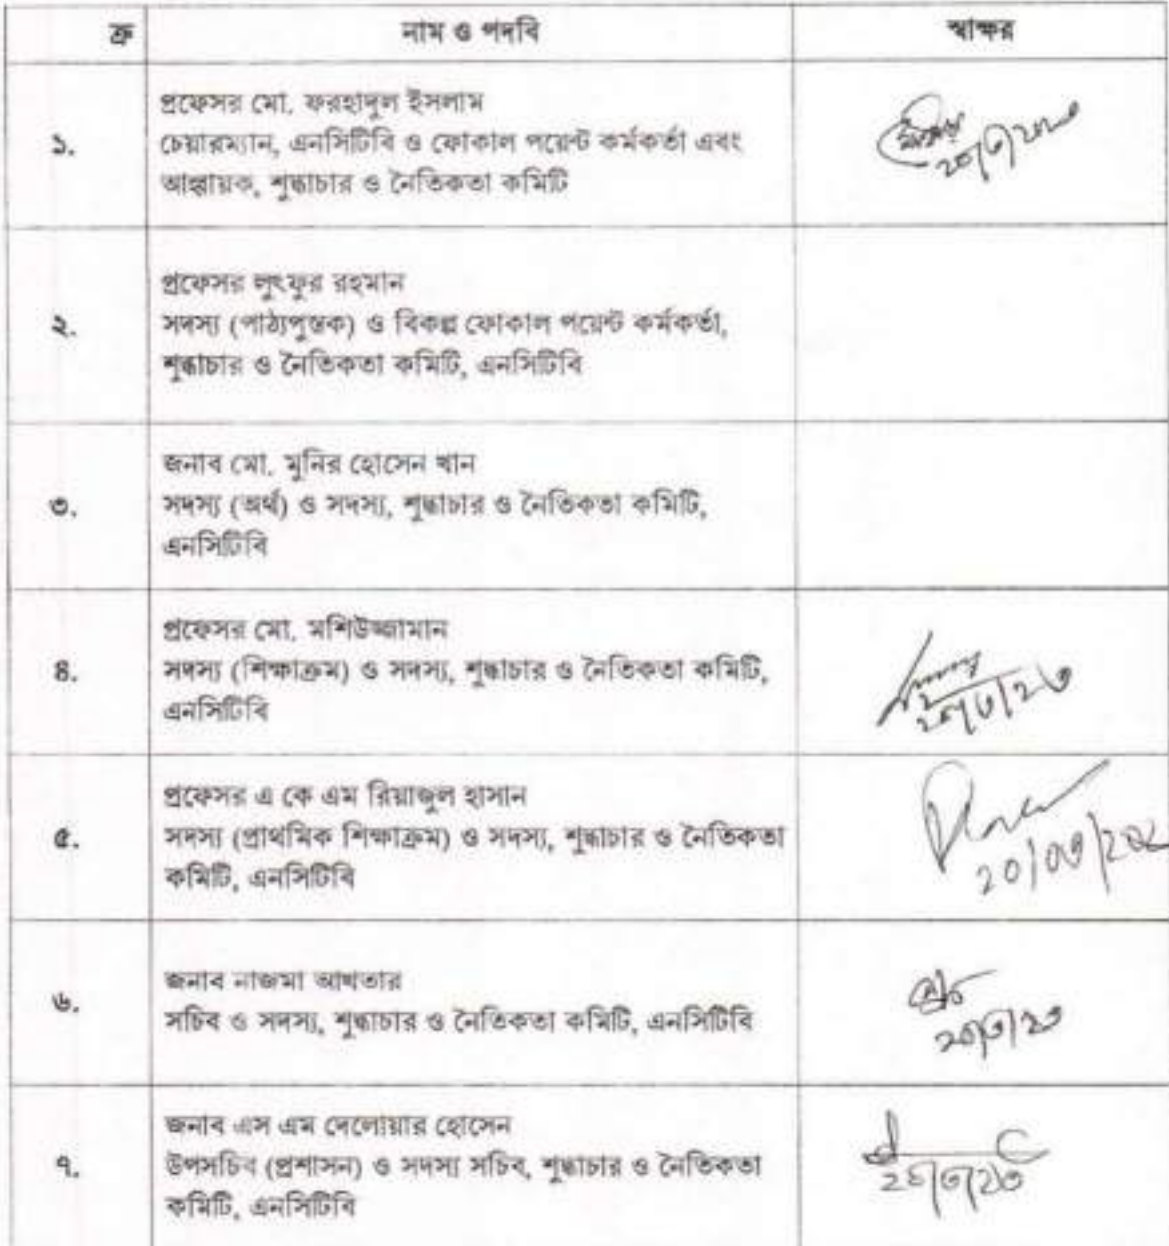 ক্র নাম ও পদবি স্বাক্ষর
প্রফেসর মো. ফরহাদুল ইসলাম
১. চেয়ারম্যান, এনসিটিবি ও ফোকাল পয়েন্ট কর্মকর্তা এবং
আহ্বায়ক, শুদ্ধাচার ও নৈতিকতা কমিটি
প্রফেসর লুৎফুর রহমান
২. সদস্য (পাঠ্যপুস্তক) ও বিকল্প ফোকাল পয়েন্ট কর্মকর্তা,
শুদ্ধাচার ও নৈতিকতা কমিটি, এনসিটিবি
জনাব মো. মুনির হোসেন খান
৩. সদস্য (অর্থ) ও সদস্য, শুদ্ধাচার ও নৈতিকতা কমিটি,
এনসিটিবি
প্রফেসর মো. মশিউজ্জামান
৪. সদস্য (শিক্ষাক্রম) ও সদস্য, শুদ্ধাচার ও নৈতিকতা কমিটি,
এনসিটিবি
প্রফেসর এ কে এম রিয়াজুল হাসান
৫. সদস্য (প্রাথমিক শিক্ষাক্রম) ও সদস্য, শুদ্ধাচার ও নৈতিকতা
কমিটি, এনসিটিবি
জনাব নাজমা আখতার
৬. সচিব ও সদস্য, শুদ্ধাচার ও নৈতিকতা কমিটি, এনসিটিবি
জনাব এস এম দেলোয়ার হোসেন
৭. উপসচিব (প্রশাসন) ও সদস্য সচিব, শুদ্ধাচার ও নৈতিকতা
কমিটি, এনসিটিবি